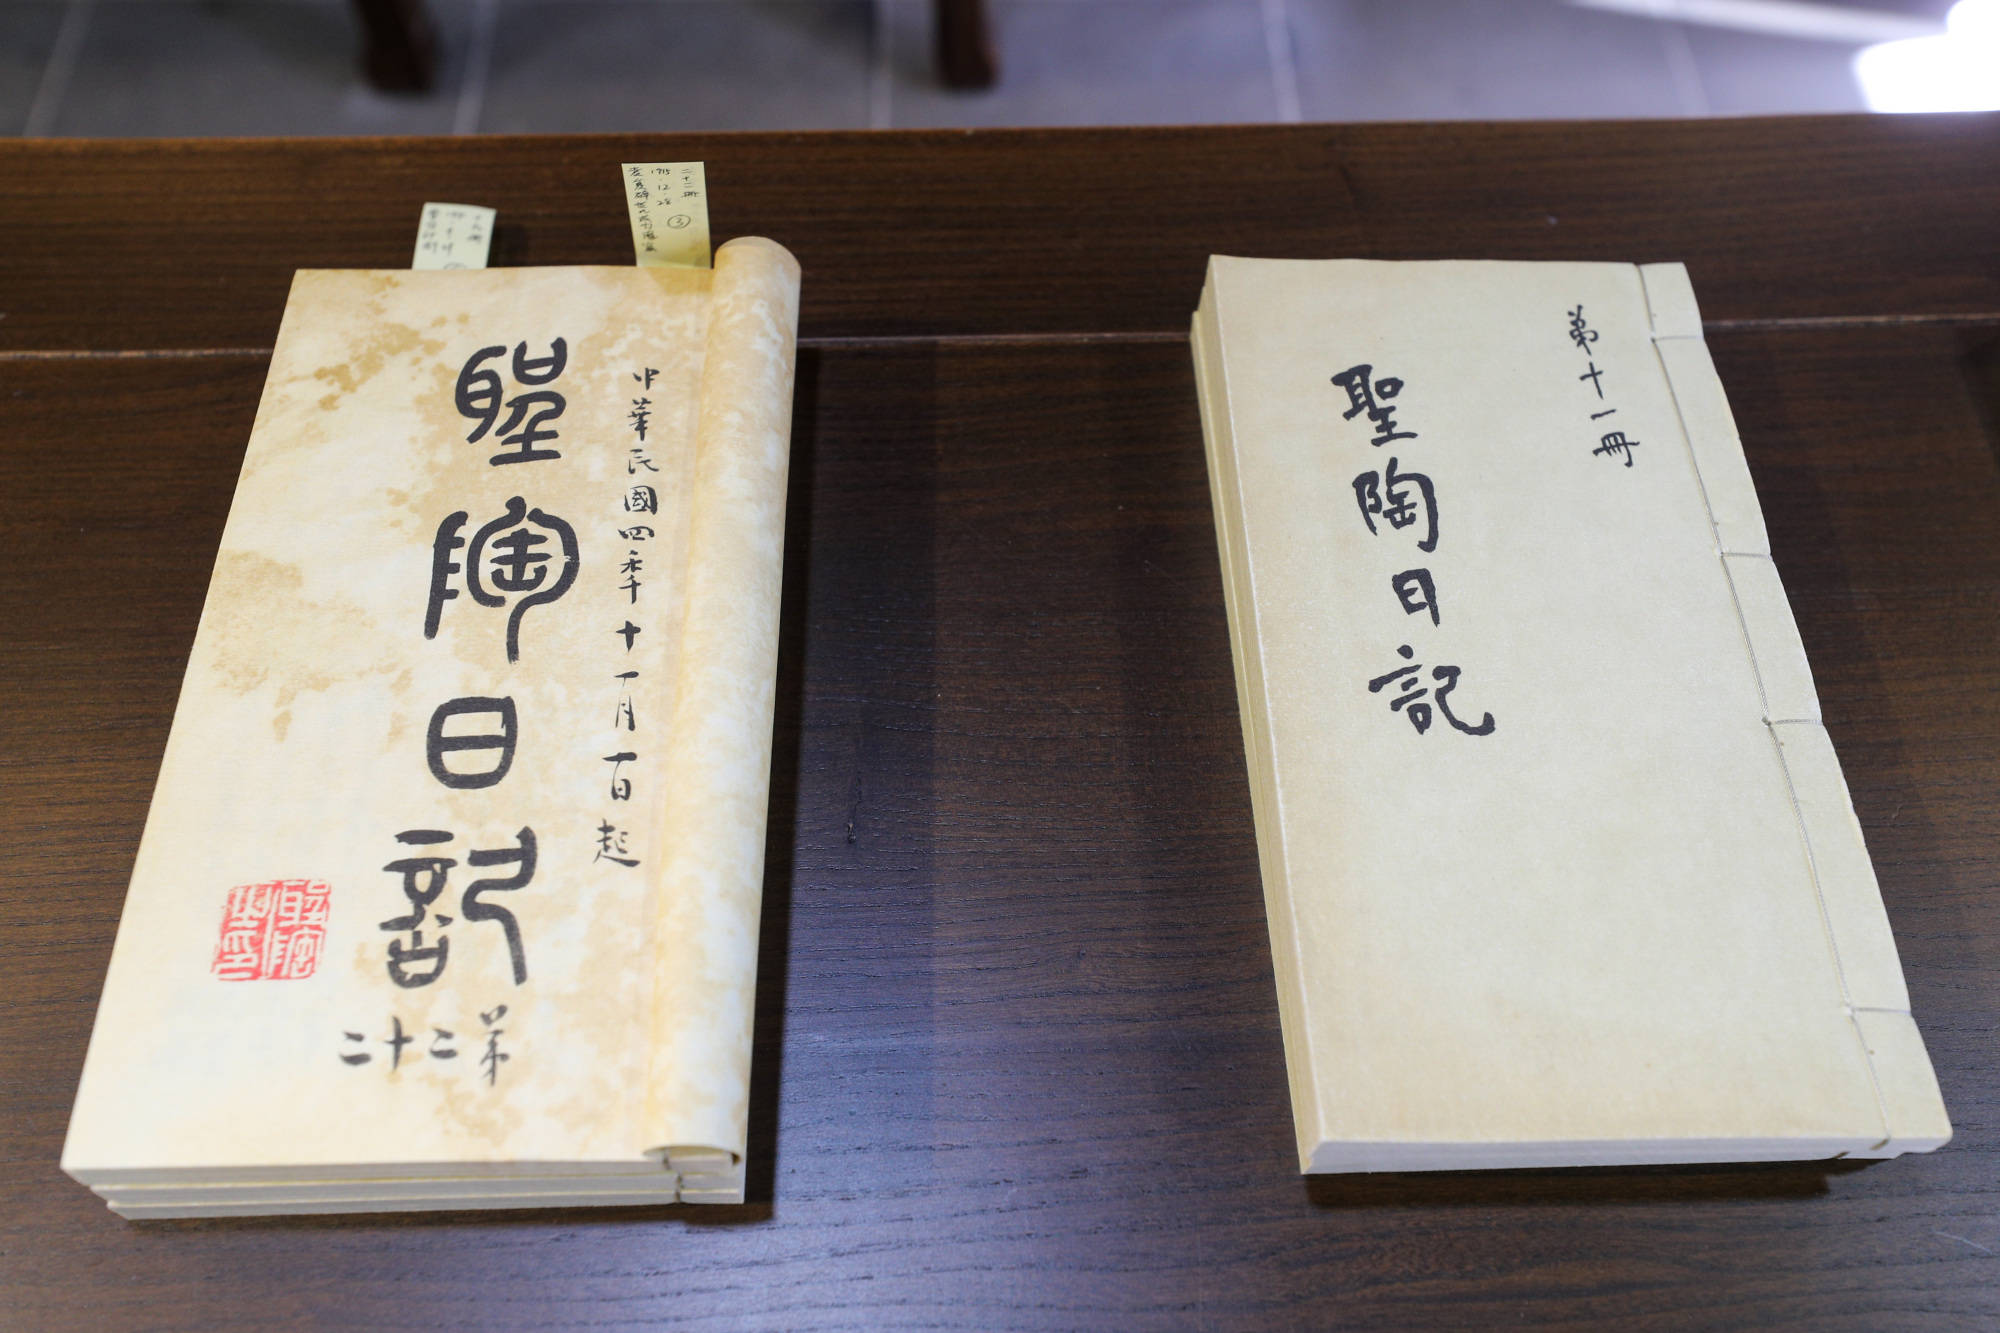 二十二冊
1915.12.28
③
中華民國四年十一月一日起
聖陶日記
第二十二
第十一冊
聖陶日記